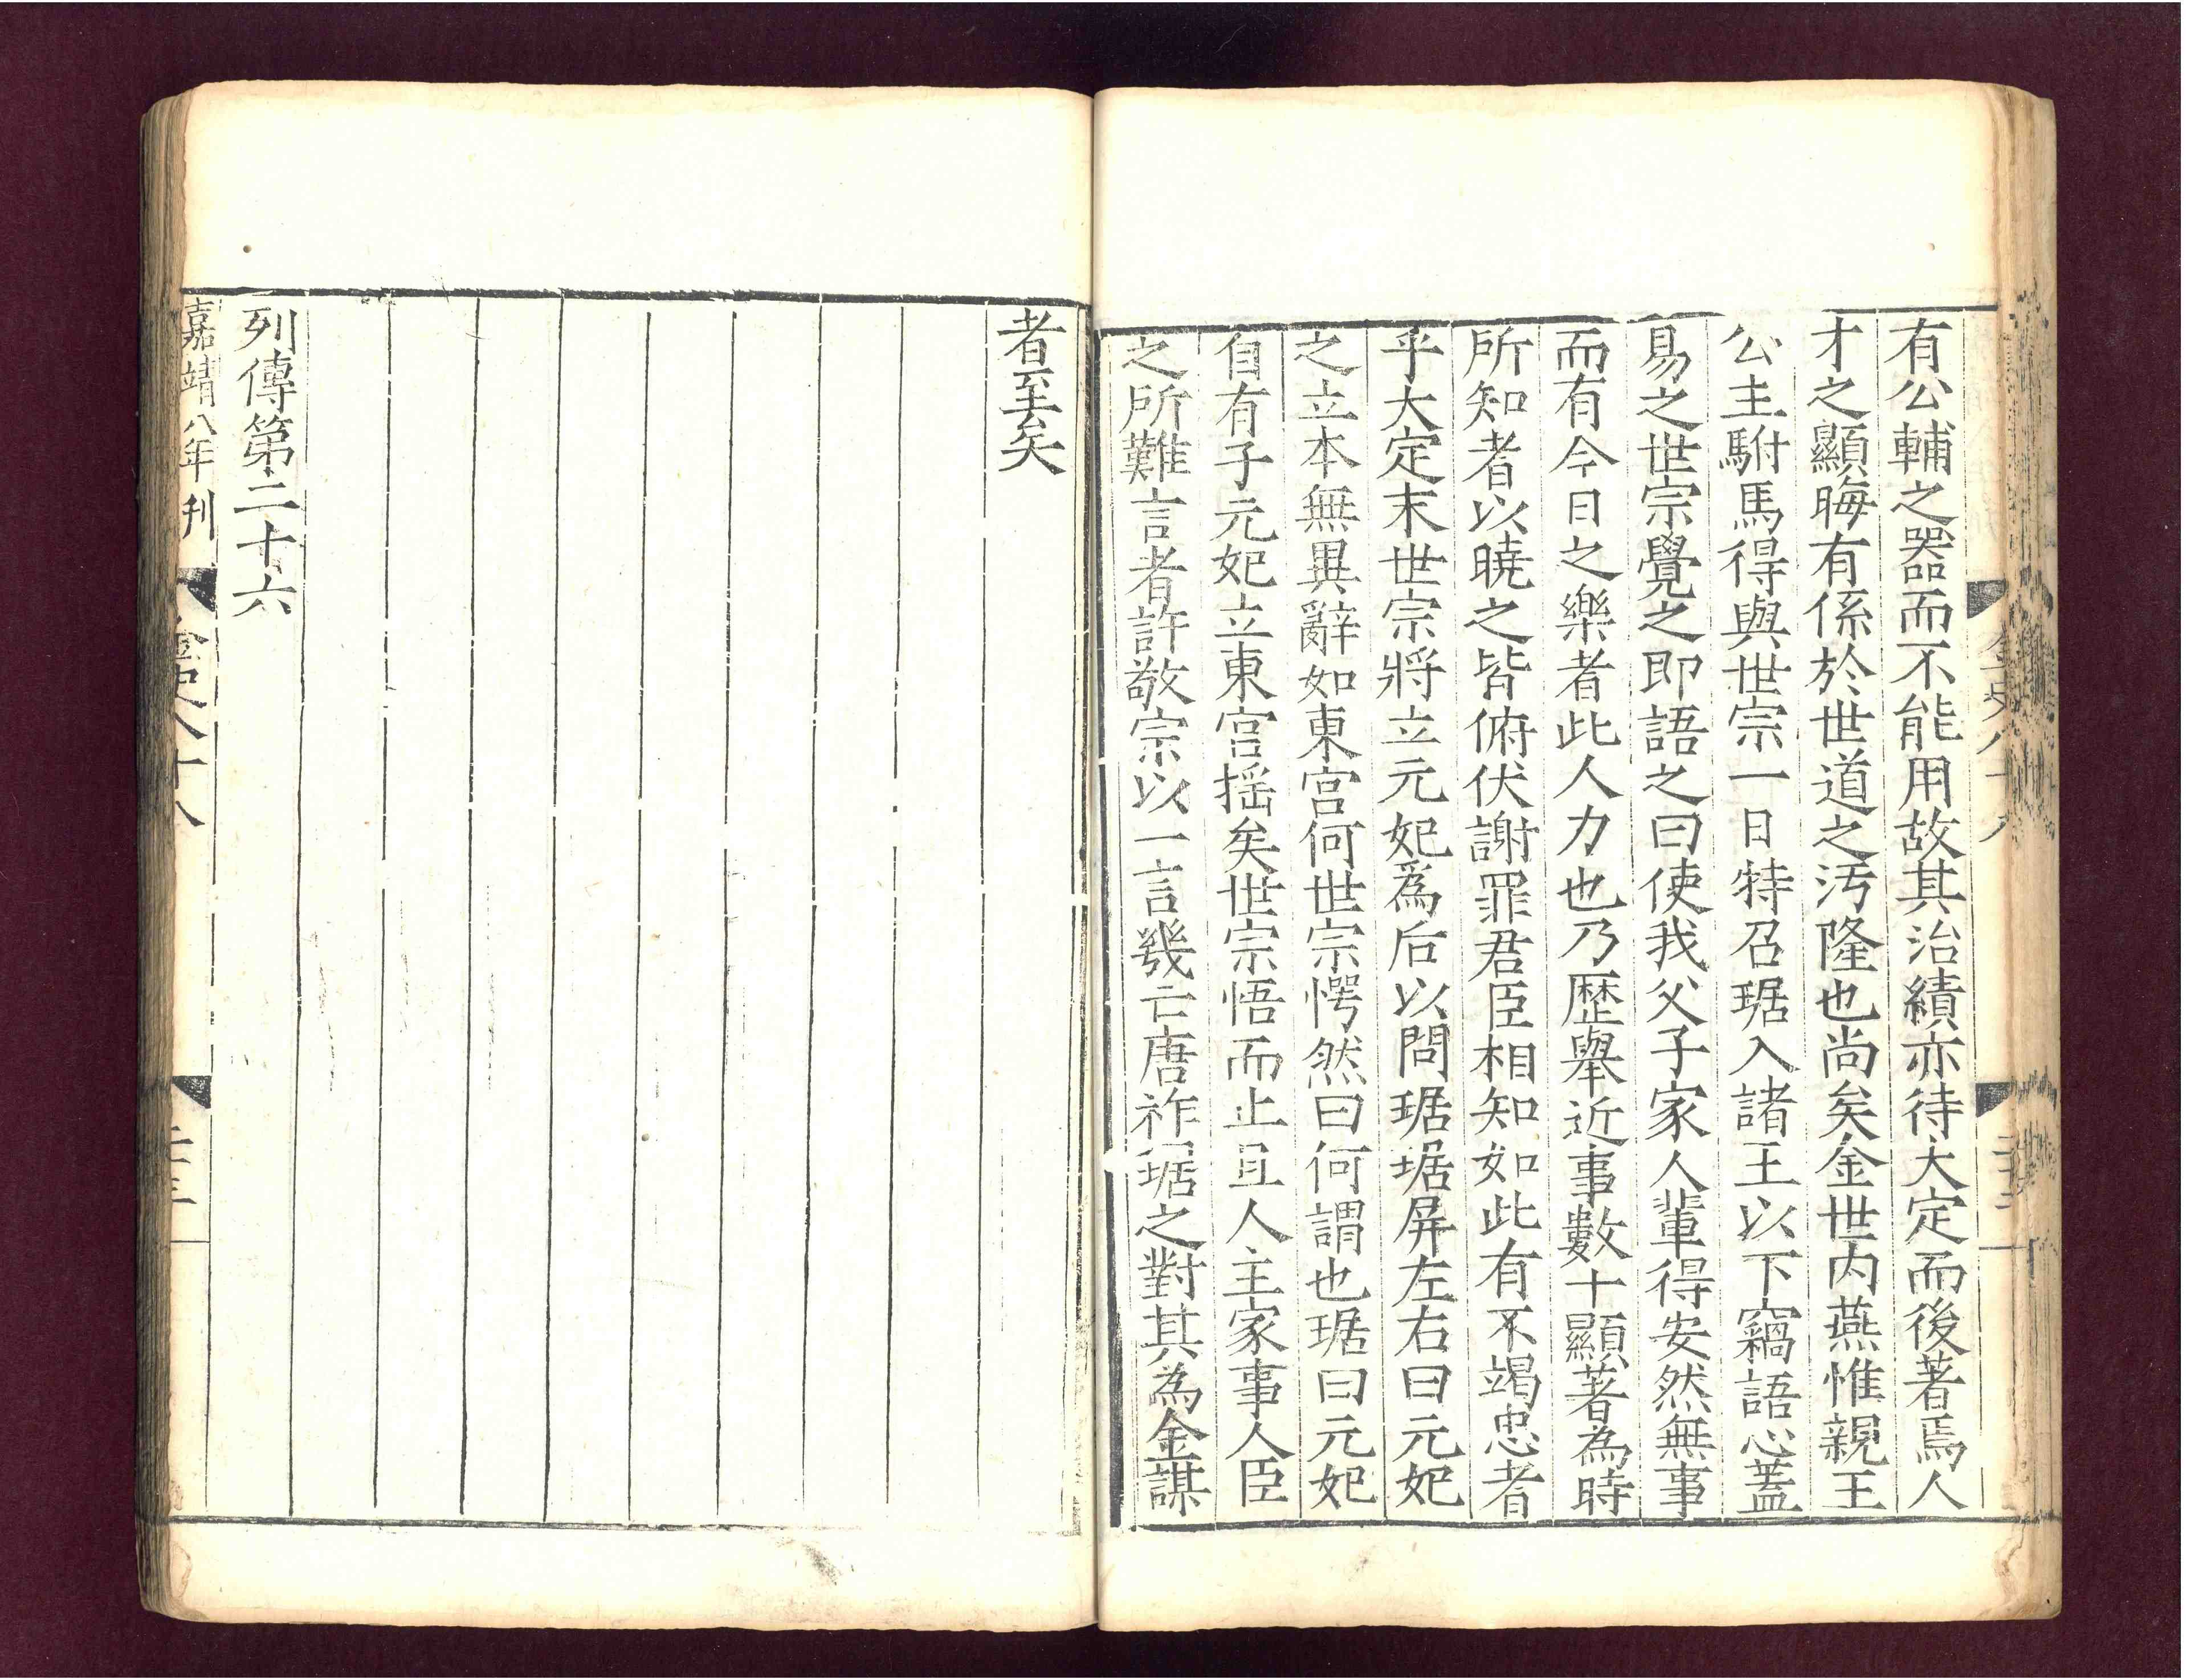 金史八十八
二十三
有公輔之器而不能用故其治績亦待大定而後著焉人
才之顯晦有係於世道之汚隆也尚矣金世内燕惟親王
公主駙馬得與世宗一日特召琚入諸王以下竊語心蓋
易之世宗覺之即語之曰使我父子家人輩得安然無事
而有今日之樂者此人力也乃歷舉近事數十顯著為時
所知者以曉之皆俯伏謝罪君臣相知如此有不竭忠者
乎大定末世宗將立元妃爲后以問琚琚屏左右曰元妃
之立本無異辭如東宮何世宗愕然曰何謂也琚曰元妃
自有子元妃立東宮揺矣世宗悟而止且人主家事人臣
之所難言者許敬宗以一言幾亡唐祚琚之對其為金謀
者至矣
列傳第二十六
嘉靖八年刊
金史八十八
二十三